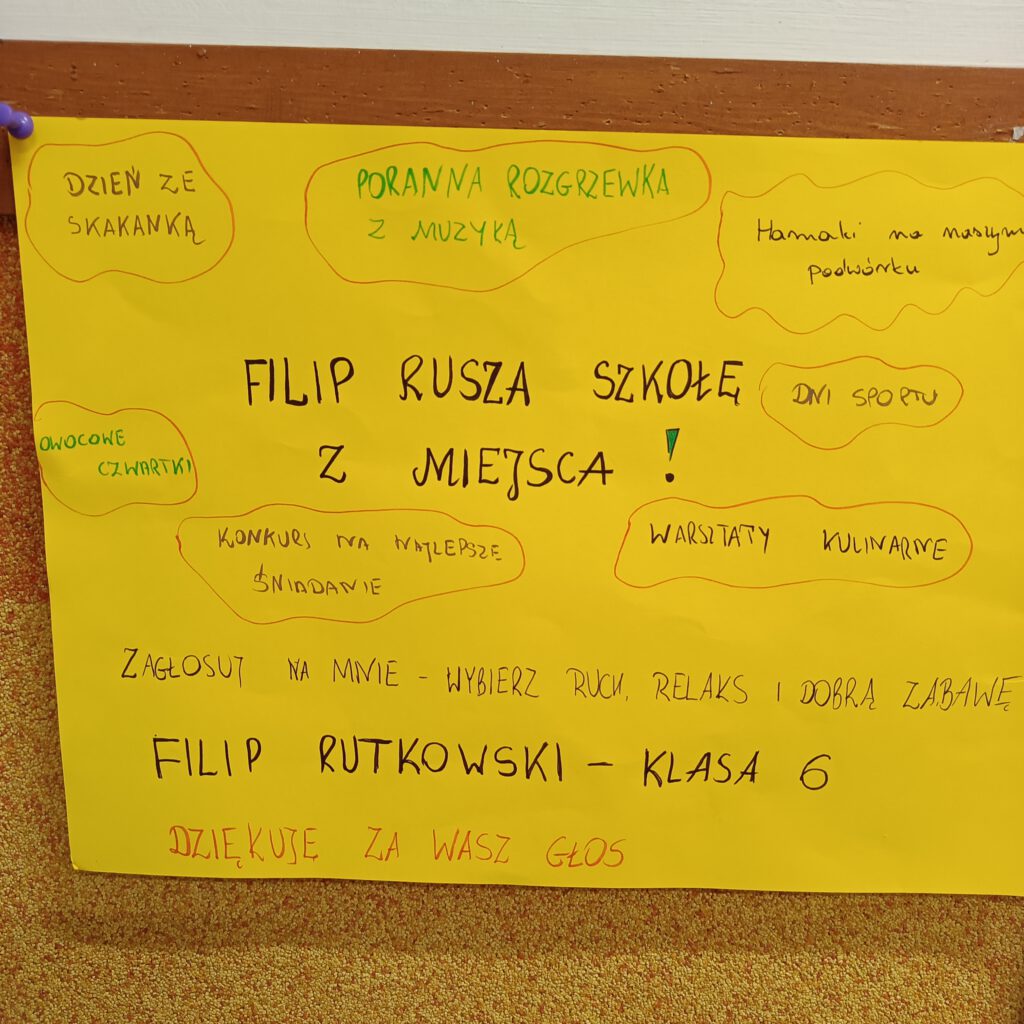 DZIEŃ ZE
SKAKANKĄ
PORANNA ROZGRZEWKA
Z MUZYKĄ
Hamaki na naszym
podwórku
FILIP RUSZA SZKOŁĘ
Z MIEJSCA !
DNI SPORTU
OWOCOWE
CZWARTKI
KONKURS NA NAJLEPSZE
ŚNIADANIE
WARSZTATY KULINARNE
ZAGŁOSUJ NA MNIE - WYBIERZ RUCH, RELAKS I DOBRĄ ZABAWĘ
FILIP RUTKOWSKI - KLASA 6
DZIĘKUJĘ ZA WASZ GŁOS